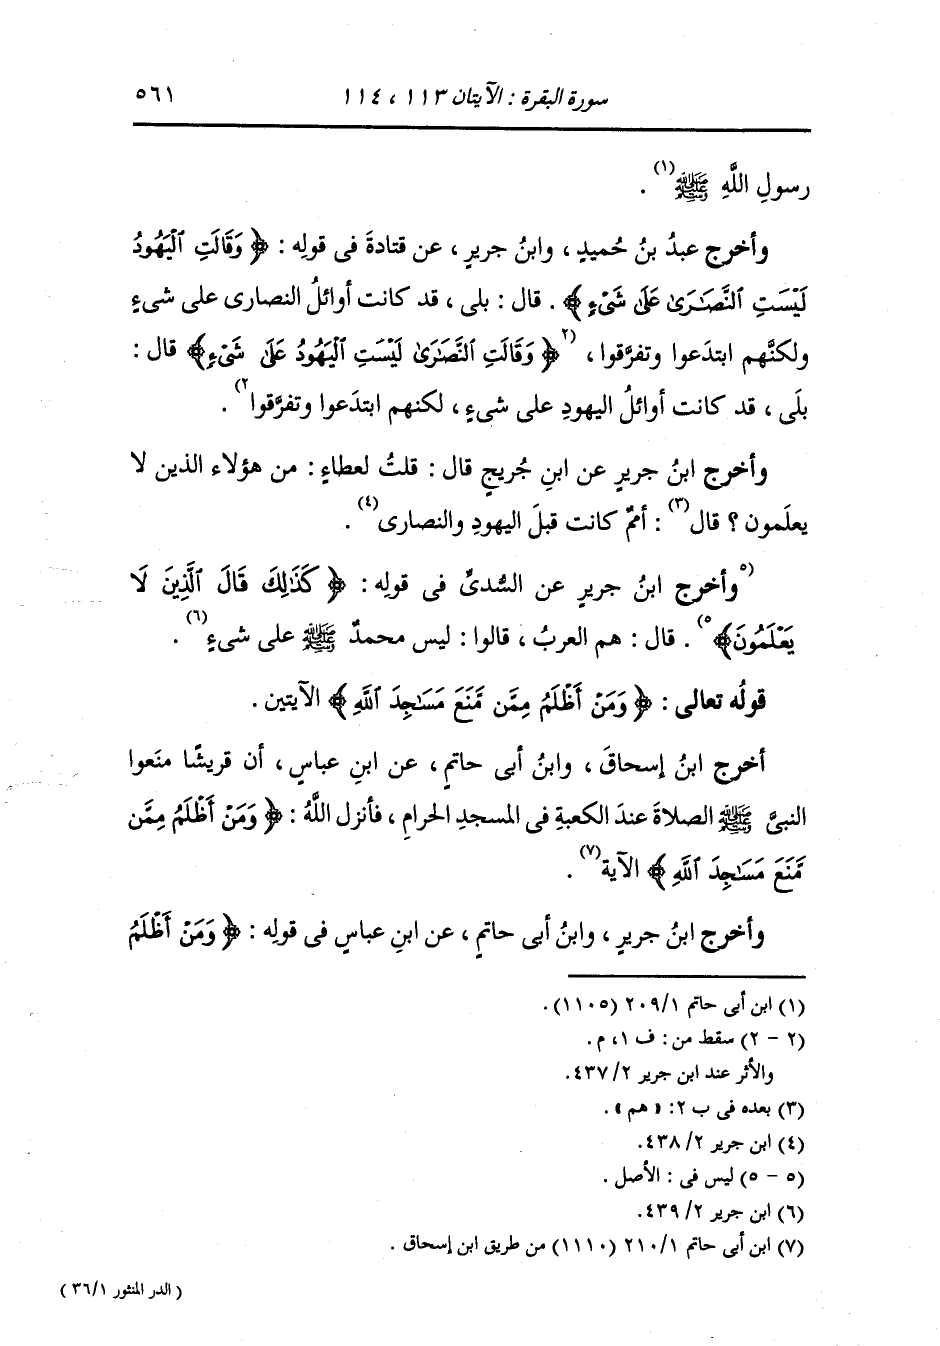 سورة البقرة : الآيتان ١١٣ ، ١١٤ ٥٦١
رسولِ اللَّهِ ﷺ(١) .
وأخرج عبدُ بنُ حُميدٍ ، وابنُ جريرٍ ، عن قتادةَ فى قولِه : ﴿ وَقَالَتِ ٱلْيَهُودُ
لَيْسَتِ ٱلنَّصَـٰرَىٰ عَلَىٰ شَىْءٍ ﴾ . قال : بلى ، قد كانت أوائلُ النصارى على شىءٍ
ولكنَّهم ابتدَعوا وتفرَّقوا ، (٢﴿ وَقَالَتِ ٱلنَّصَـٰرَىٰ لَيْسَتِ ٱلْيَهُودُ عَلَىٰ شَىْءٍ﴾ قال :
بلَى ، قد كانت أوائلُ اليهودِ على شىءٍ ، لكنهم ابتدَعوا وتفرَّقوا٢) .
وأخرج ابنُ جريرٍ عن ابنِ جُريجٍ قال : قلتُ لعطاءٍ : من هؤلاء الذين لا
يعلَمون ؟ قال(٣) : أممٌ كانت قبلَ اليهودِ والنصارى(٤) .
(٥وأخرج ابنُ جريرٍ عن السُّدىِّ فى قولِه : ﴿ كَذَٰلِكَ قَالَ ٱلَّذِينَ لَا
يَعْلَمُونَ﴾٥) . قال : هم العربُ ، قالوا : ليس محمدٌ ﷺ على شىءٍ(٦) .
قولُه تعالى : ﴿ وَمَنْ أَظْلَمُ مِمَّن مَّنَعَ مَسَـٰجِدَ ٱللَّهِ ﴾ الآيتين .
أخرج ابنُ إسحاقَ ، وابنُ أبى حاتمٍ ، عن ابنِ عباسٍ ، أن قريشًا منَعوا
النبىَّ ﷺ الصلاةَ عندَ الكعبةِ فى المسجدِ الحرامِ ، فأنزل اللَّهُ : ﴿ وَمَنْ أَظْلَمُ مِمَّن
مَّنَعَ مَسَـٰجِدَ ٱللَّهِ ﴾ الآية(٧) .
وأخرج ابنُ جريرٍ ، وابنُ أبى حاتمٍ ، عن ابنِ عباسٍ فى قولِه : ﴿ وَمَنْ أَظْلَمُ
(١) ابن أبى حاتم ٢٠٩/١ (١١٠٥) .
(٢ - ٢) سقط من : ف ١، م .
والأثر عند ابن جرير ٤٣٧/٢ .
(٣) بعده فى ب ٢: « هم » .
(٤) ابن جرير ٤٣٨/٢ .
(٥ - ٥) ليس فى : الأصل .
(٦) ابن جرير ٤٣٩/٢ .
(٧) ابن أبى حاتم ٢١٠/١ (١١١٠) من طريق ابن إسحاق .
( الدر المنثور ٣٦/١ )